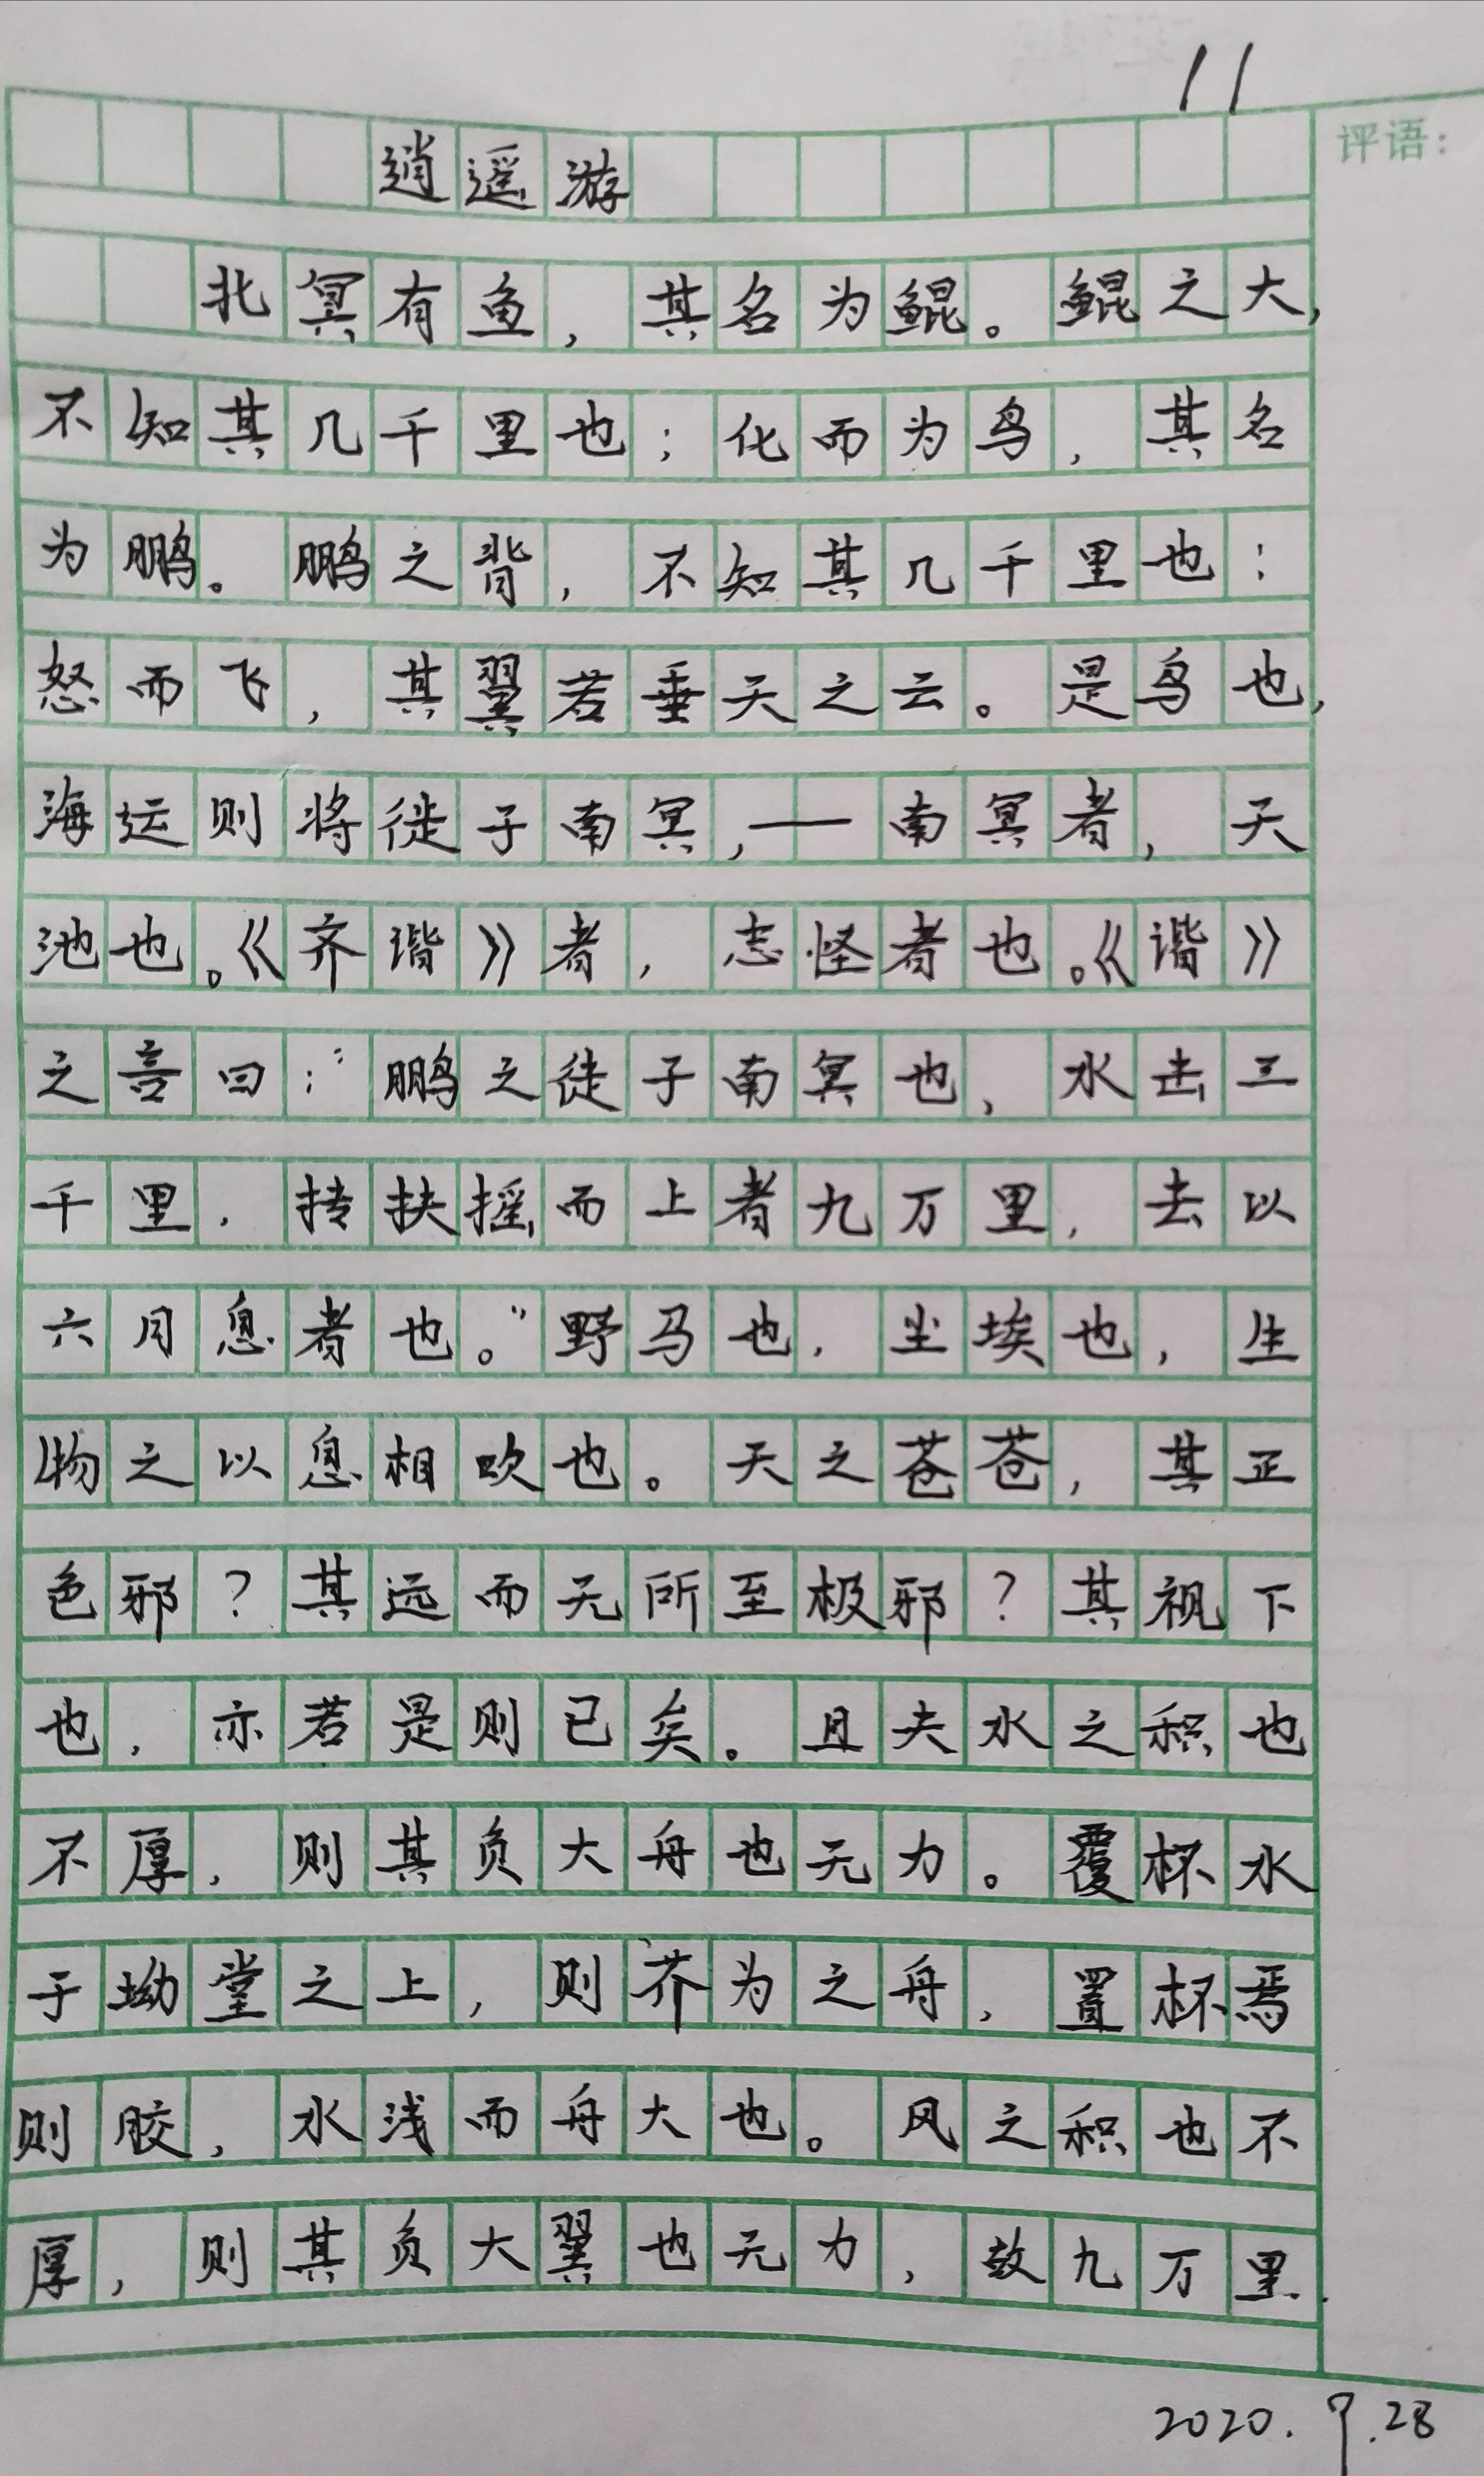 11
评语:
逍遥游
北冥有鱼，其名为鲲。鲲之大，
不知其几千里也；化而为鸟，其名
为鹏。鹏之背，不知其几千里也：
怒而飞，其翼若垂天之云。是鸟也，
海运则将徙于南冥，—南冥者，天
池也。《齐谐》者，志怪者也。《谐》
之言曰：“鹏之徒于南冥也，水击三
千里，抟扶摇而上者九万里，去以
六月息者也。”野马也，尘埃也，生
物之以息相吹也。天之苍苍，其正
色邪？其远而无所至极邪？其视下
也，亦若是则已矣。且夫水之积也
不厚，则其负大舟也无力。覆杯水
于坳堂之上，则芥为之舟，置杯焉
则胶，水浅而舟大也。风之积也不
厚，则其负大翼也无力，故九万里.
2020.9.28